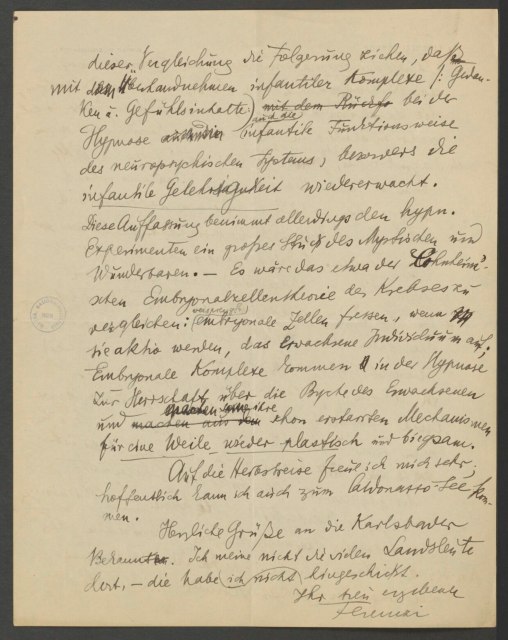 dieser Vergleichung die Folgerung ziehen, daß
mit dem Überhandnehmen infantiler Komplexe /: Gedan-
ken u. Gefühlsinhalte :/ mit dem bei der
auch die
Hypnose infantile Funktionsweise
des neuropsychischen Systems, besonders die
infantile Gelehrigkeit wiedererwacht.
Diese Auffassung benimmt allerdings den hypn.
Experimenten ein großes Stück des Mystischen und
Wunderbaren. — Es wäre das etwa der Cohnheim'-
schen Embryonalzellentheorie des Krebses zu
versprengte
vergleichen: embryonale Zellen fressen, wenn
sie aktiv werden, das erwachsene Individuum auf;
Embryonale Komplexe kommen in der Hypnose
zur Herrschaft über die Psyche des Erwachsenen
machen ihre
und machen aus dem schon erstarrten Mechanismen
für eine Weile wieder plastisch und biegsam.
Auf die Herbstreise freue ich mich sehr;
hoffentlich kann ich auch zum Caldonazzo-See kom-
men.
Herzliche Grüße an die Karlsbader
Bekannten. Ich meine nicht die vielen Landsleute
dort, — die habe ich nicht hingeschickt.
Ihr treu ergebener
Ferenczi